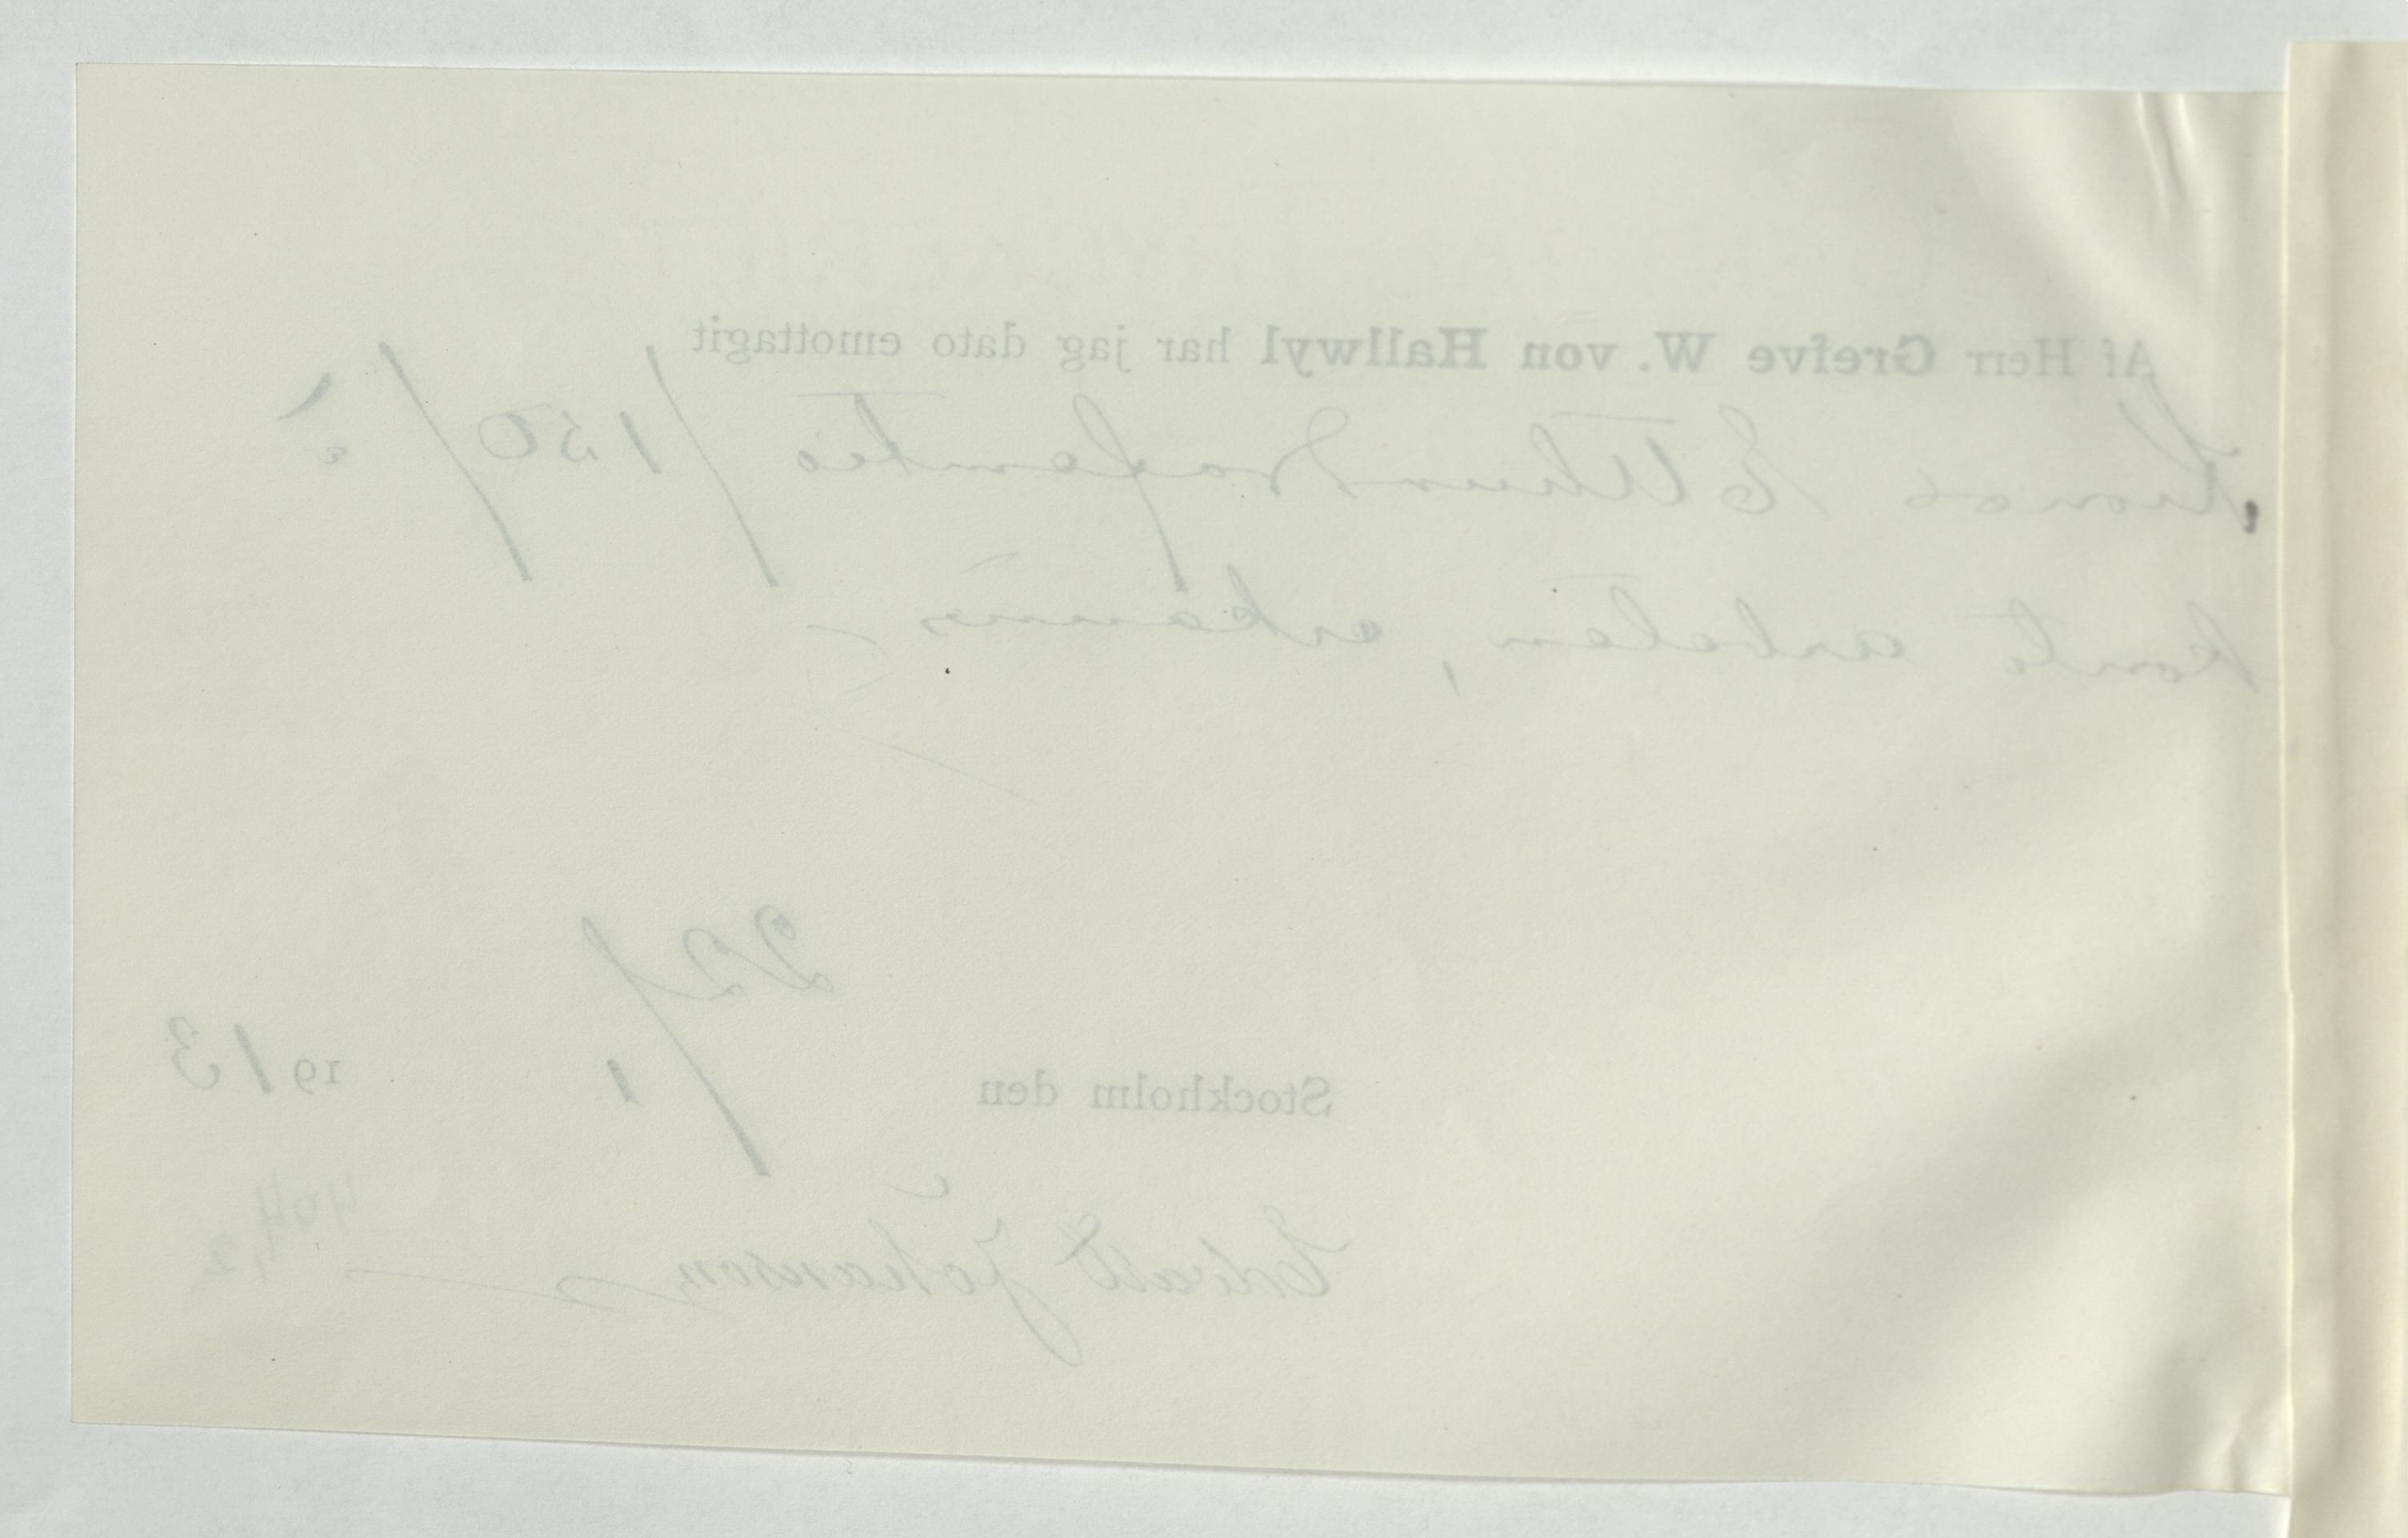 Af Herr Grefve W. von Hallwyl har jag dato emottagit
Kronor Etthundrafemtio /150/ å
konto arbeten, erkännes
22/1
Stockholm den 1913
Edvard Johanson
404,2